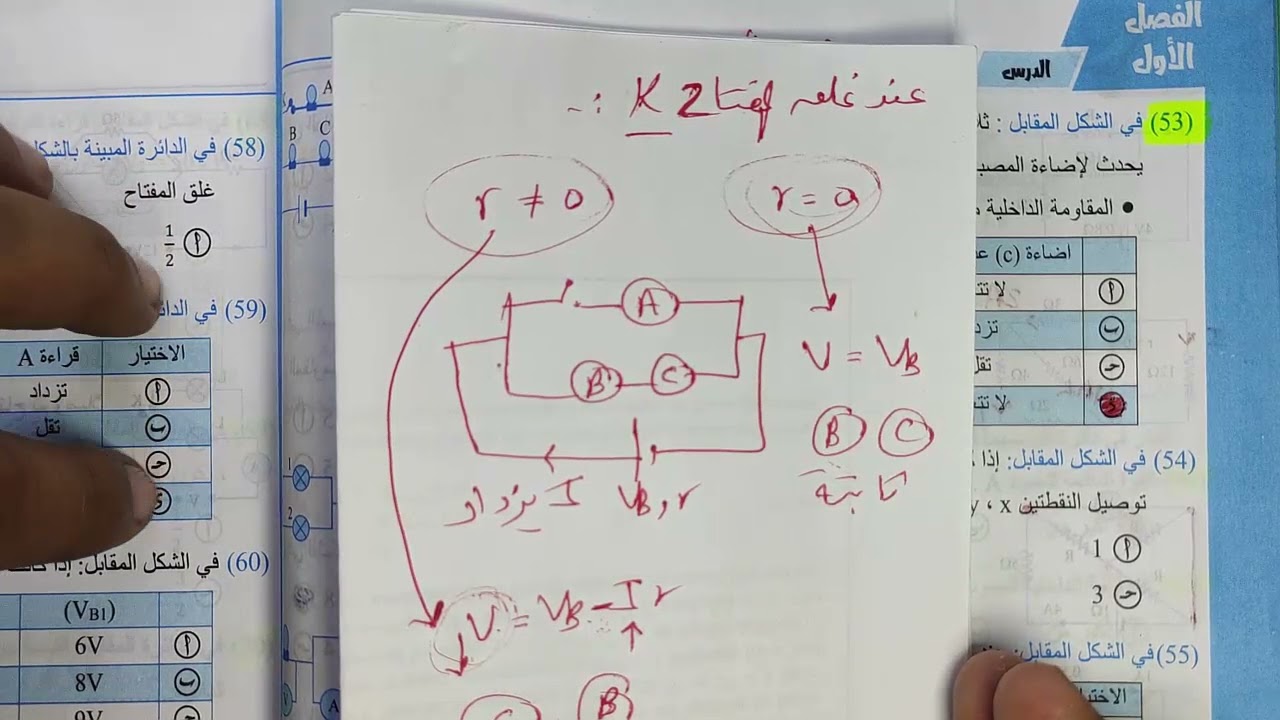 الفصل
الأول
الدرس
(53) في الشكل المقابل :
يحدث لإضاءة المصب
• المقاومة الداخلية
اضاءة (c)
أ
لا تت
ب
تزد
جـ
تقل
د
لا تت
(54) في الشكل المقابل: إذا
توصيل النقطتين y ، x
أ 1
جـ 3
(55) في الشكل المقابل:
الاختي
عند غلق مفتاح K :-
r = 0
r ≠ 0
A
B C
V = VB
B C
ثابتة
I يزداد
VB, r
V = VB - I r
C B
A
B C
1
2
(58) في الدائرة المبينة بالشكل
غلق المفتاح
أ 1/2
(59) في الدائ
الاختيار قراءة A
أ تزداد
ب تقل
جـ
د
(60) في الشكل المقابل: إذا
(VB1)
أ 6V
ب 8V
جـ 9V